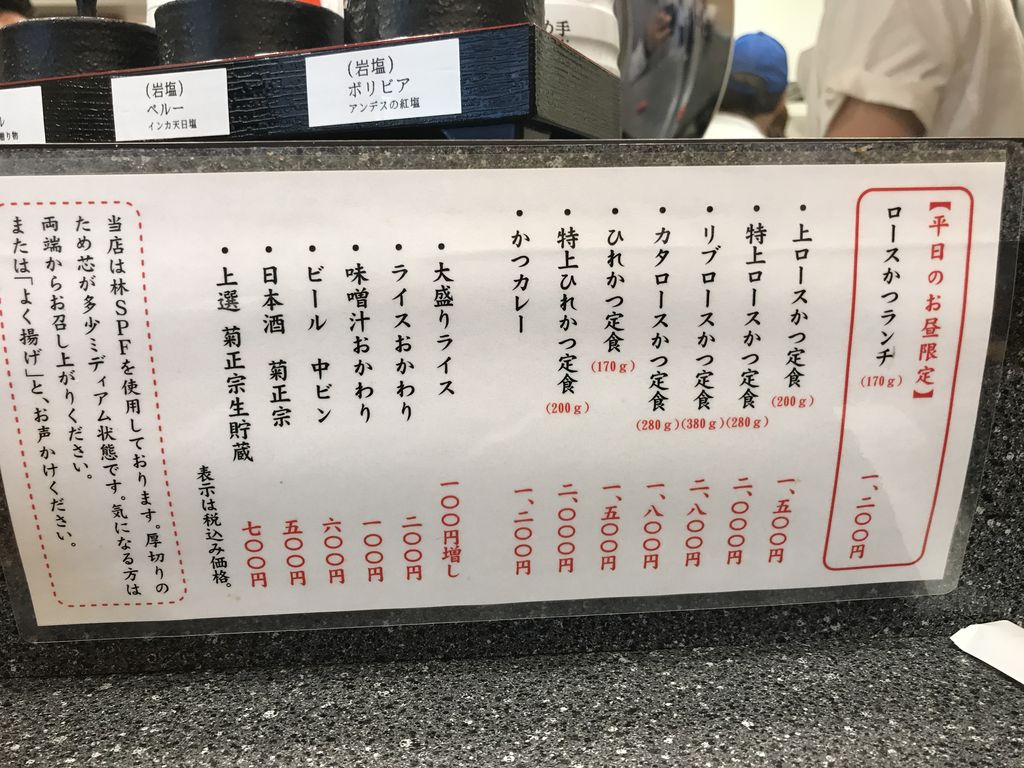 （岩塩）
ペルー
インカ天日塩
（岩塩）
ボリビア
アンデスの紅塩
【平日のお昼限定】
ロースかつランチ（170g） 一、二〇〇円
・上ロースかつ定食（200g） 一、五〇〇円
・特上ロースかつ定食（280g） 二、〇〇〇円
・リブロースかつ定食（380g） 二、八〇〇円
・カタロースかつ定食（280g） 一、八〇〇円
・ひれかつ定食（170g） 一、五〇〇円
・特上ひれかつ定食（200g） 二、〇〇〇円
・かつカレー 一、二〇〇円
・大盛りライス 一〇〇円増し
・ライスおかわり 二〇〇円
・味噌汁おかわり 一〇〇円
・ビール 中ビン 六〇〇円
・日本酒 菊正宗 五〇〇円
・上選 菊正宗生貯蔵 七〇〇円
表示は税込み価格。
当店は林SPFを使用しております。厚切りの
ため芯が多少ミディアム状態です。気になる方は
両端からお召し上がりください。
または「よく揚げ」と、お声かけください。